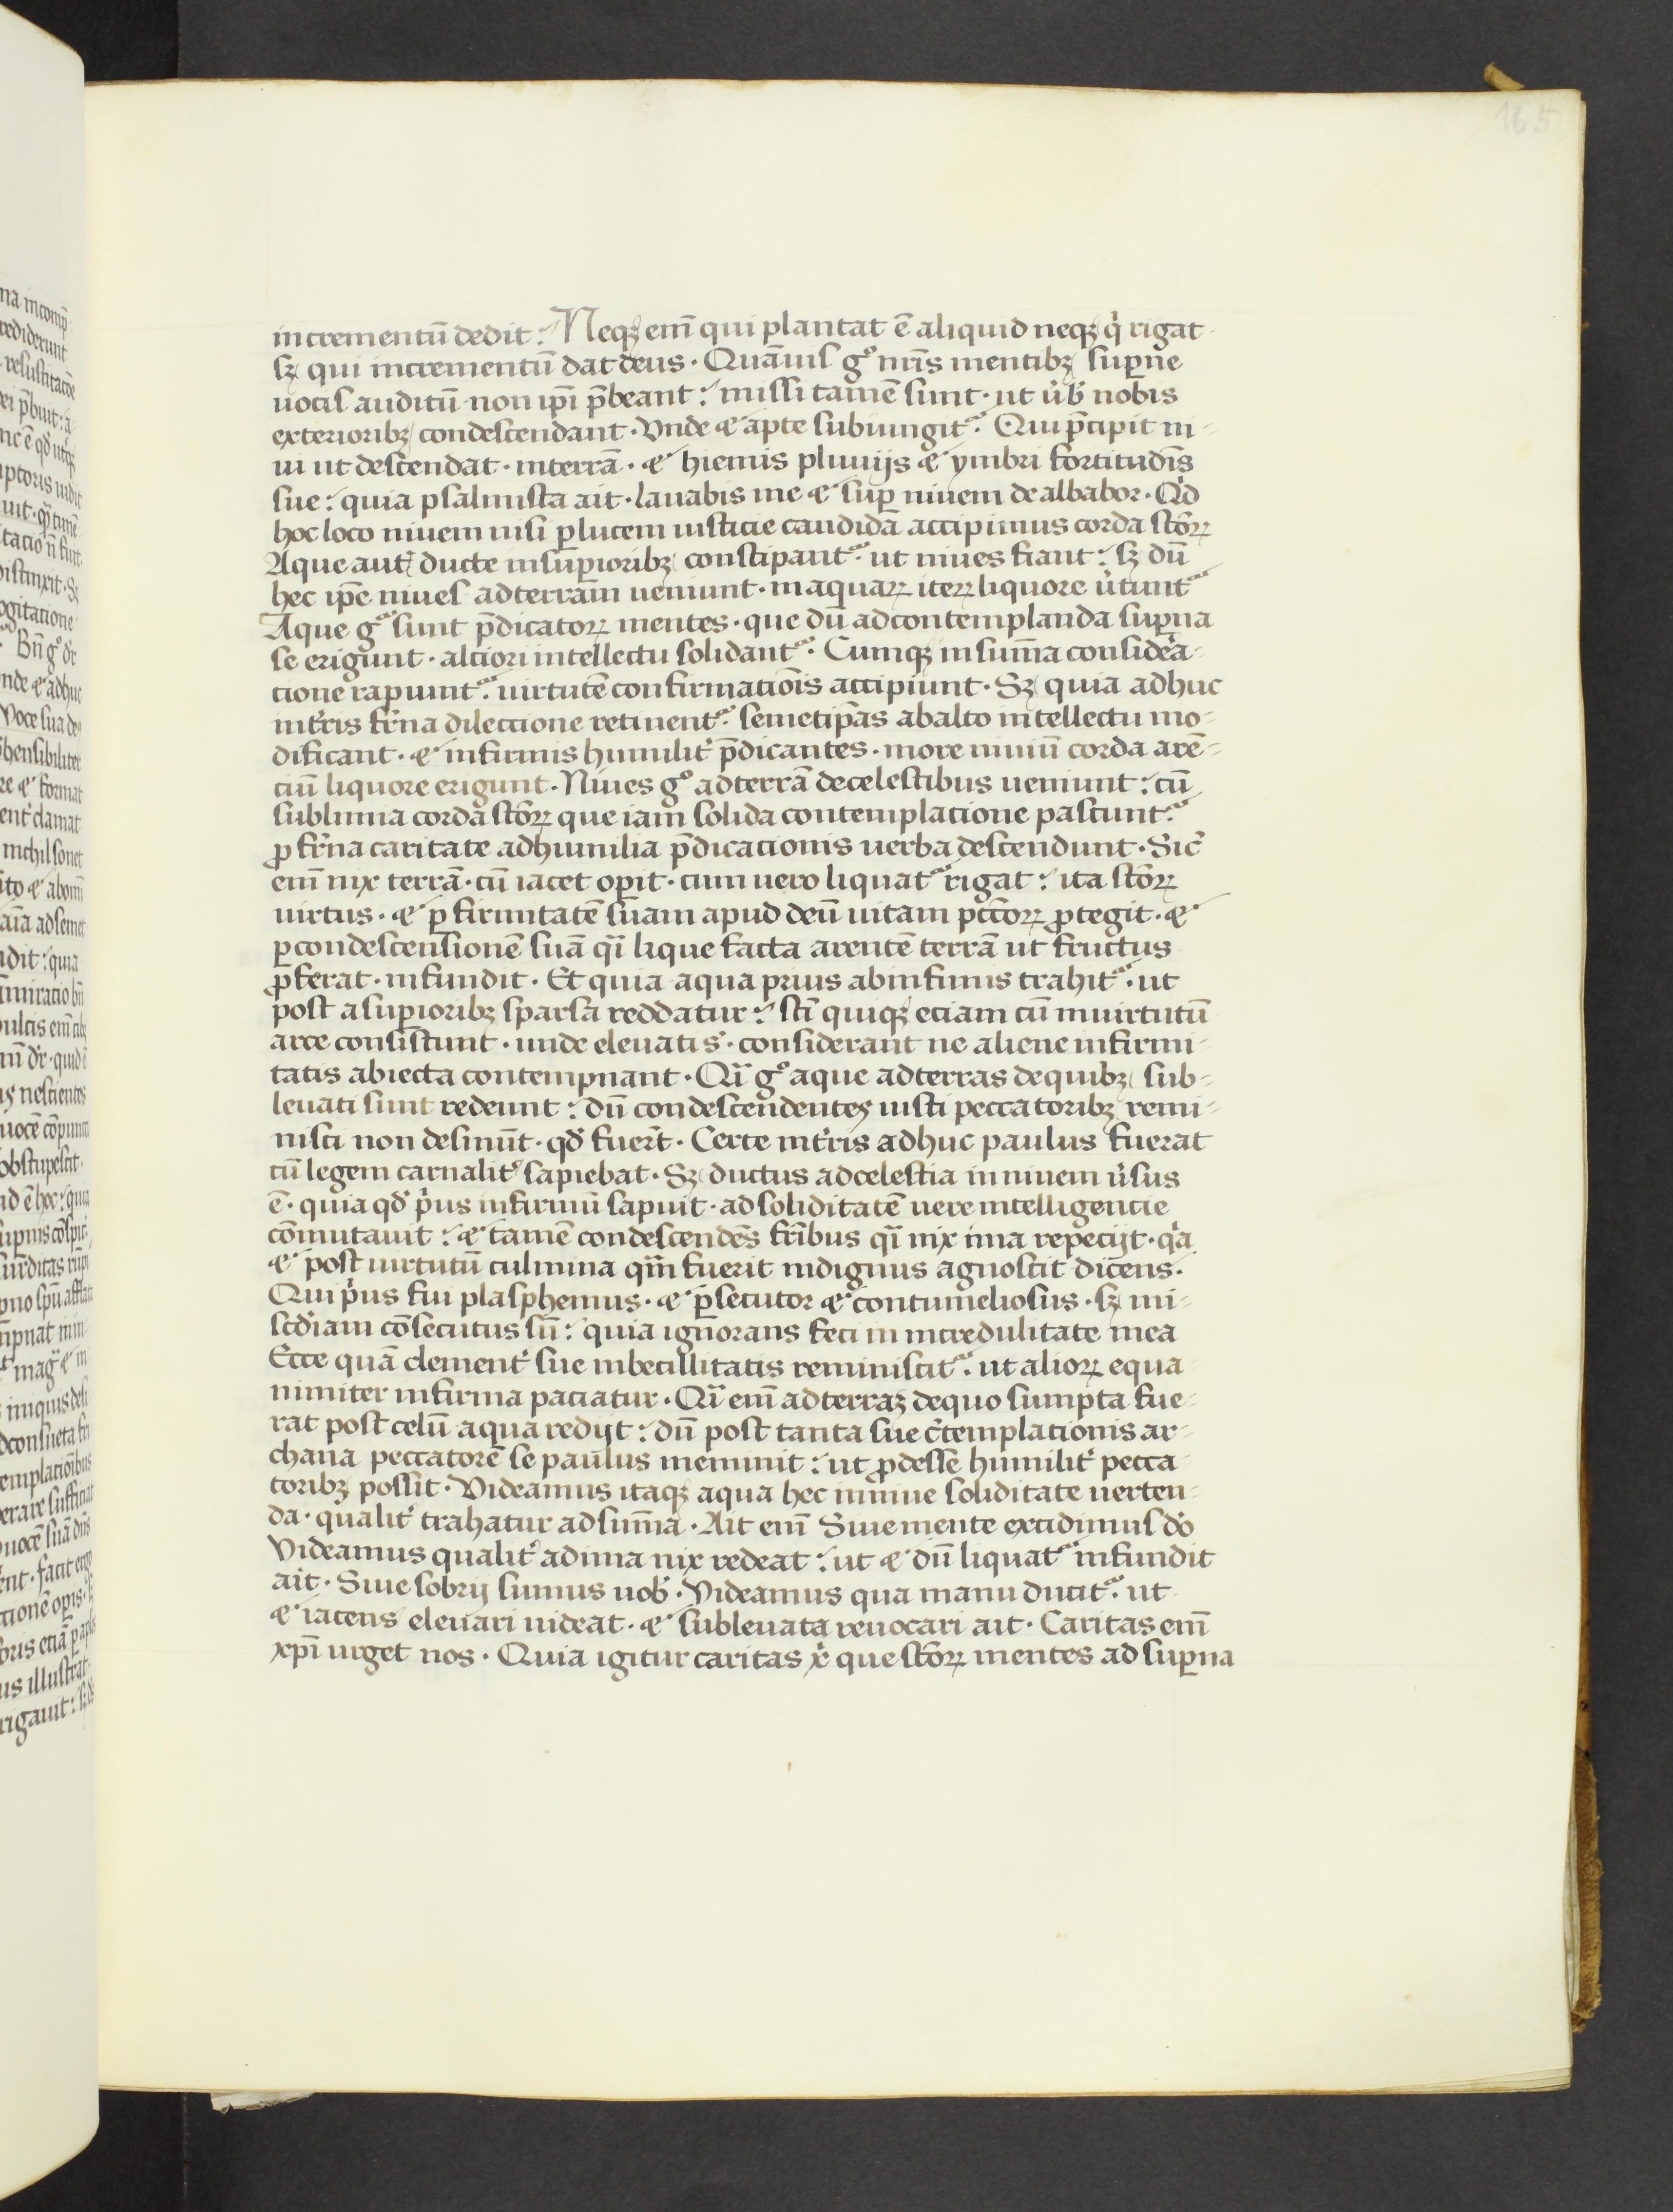 165
incrementū dedit : Neqꝫ em̄ qui plantat ē aliquid neqꝫ qͥ rigat ·
sꝫ qui incrementū dat deus · Quāuis gͦ nr̄is mentibꝫ suꝑne
uocis auditū non ip̄i p̄beant : missi tamē sunt · ut ůbͥ nobis
exterioribꝫ condescendant · Vnde ⁊ apte subiungit᷑ · Qui p̄cipit ni-
ui ut descendat · in terrā · ⁊ hiemis pluuijs ⁊ ymbri fortitudīs
sue : quia psalmista ait · lauabis me ⁊ suꝑ niuem dealbabor · Qͥd
hoc loco niuem nisi ꝑ lucem iusticie candidā accipimus corda sc̄oꝝ
Aque aut̄ ducte in suꝑioribꝫ constipant᷑ ut niues fiant : sꝫ dū
hec ip̄e niues ad terram ueniunt · in aquaꝝ iteꝝ liquore ůtunt᷑
Aque gͦ sunt p̄dicatoꝝ mentes · que dū ad contemplanda suꝑna
se erigunt · alciori intellectu solidant᷑ · Cumqꝫ in sum̄a considēa-
cione rapiunt᷑ uirtutē confirmatiōis accipiunt · Sꝫ quia adhuc
in tr̄is fr̄na dileccione retinent᷑ semetip̄as ab alto intellectu mo-
dificant · ⁊ infirmis humilit᷑ p̄dicantes · more niuiū corda arē-
ciū liquore erigunt · Niues gͦ ad terrā de celestibus ueniunt : cū
sublimia corda sc̄oꝝ que iam solida contemplacione pascunt᷑
ꝓ fr̄na caritate ad humilia p̄dicacionis uerba descendunt · Sic̄
em̄ nix terrā · cū iacet oꝑit · cum uero liquat᷑ rigat : ita sc̄oꝝ
uirtus · ⁊ ꝑ firmitatē suam apud deū uitam pcc̄oꝝ ꝓtegit · ⁊
ꝑ condescensionē suā qͣi lique facta arentē terrā ut fructus
ꝓferat · infundit · Et quia aqua prius ab infimis trahit᷑ · ut
post a suꝑioribꝫ sparsa reddatur : sc̄i quiqꝫ eciam cū in uirtutū
arce consistunt · unde eleuati s̄ · considerant ne aliene infirmi-
tatis abiecta contempnant · Qͣi gͦ aque ad terras de quibꝫ sub-
leuati sunt redeunt : dū condescendentes iusti peccatoribꝫ remi-
nisci non desinūt · qd̄ fuer̄t · Certe in tr̄is adhuc paulus fuerat
cū legem carnalit᷑ sapiebat · Sꝫ ductus ad celestia in niuem ůsus
ē · quia qd̄ pͥus infirmū sapuit · ad soliditatē uere intelligencie
cōmutauit : ⁊ tamē condescendēs fr̄ibus qͣi nix ima repecijt · qͥa
⁊ post uirtutū culmina qm̄ fuerit indignus agnoscit dicens ·
Qui pͥus fui plasphemus · ⁊ ꝑsecutor ⁊ contumeliosus · sꝫ mi-
sc̄diam cōsecutus sū : quia ignorans feci in incredulitate mea
Ecce quā clement᷑ sue inbecillitatis reminiscit᷑ · ut alioꝝ equa
nimiter infirma paciatur · Qͣi em̄ ad terraꝫ de quo sumpta fue-
rat post celū aqua redijt : dū post tanta sue c̄templationis ar-
chana peccatorē se paulus meminit : ut ꝓdesse humilit᷑ pecca
toribꝫ possit · Videamus itaqꝫ aqua hec in niue soliditate uerten-
da · qualit᷑ trahatur ad sum̄a · Ait em̄ Siue mente excidimus dō
Videamus qualit᷑ ad ima nix redeat : ut ⁊ dū liquat᷑ infundit
ait · Siue sobrij sumus uob̄ · Videamus qua manu ducit᷑ · ut
⁊ iacens eleuari uideat · ⁊ subleuata reuocari ait · Caritas em̄
xp̄i urget nos · Quia igitur caritas xͥ que sc̄oꝝ mentes ad suꝑna